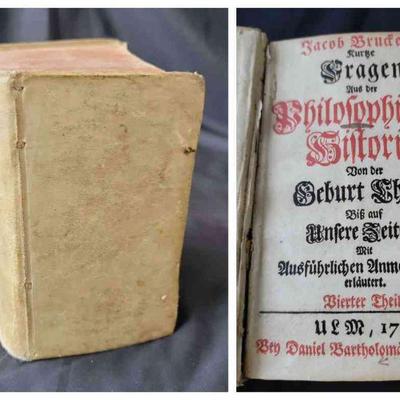 Jacob Brucke
Kurtze
Fragen
Aus der
Philosophi
Histori
Von der
Geburt Ch
Biß auf
Unsere Zeit
Mit
Ausführlichen Anm
erläutert.
Vierter Theil
ULM, 17
Bey Daniel Bartholomä